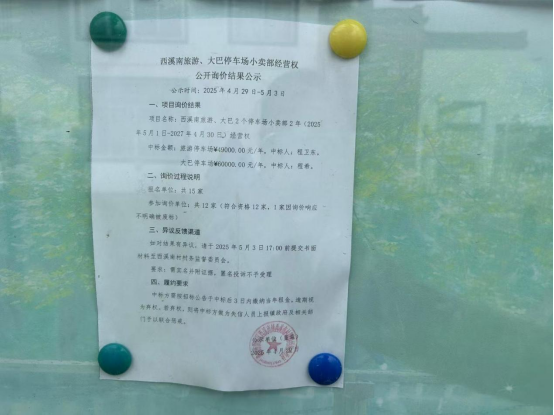 西溪南旅游、大巴停车场小卖部经营权
公开询价结果公示
公示时间：2025年4月29日-5月3日
一、项目询价结果
项目名称：西溪南旅游、大巴2个停车场小卖部2年（2025
年5月1日-2027年4月30日）经营权
中标金额：旅游停车场¥49000.00元/年，中标人：程卫东。
大巴停车场¥60000.00元/年，中标人：程希。
二、询价过程说明
报名单位：共15家
参加询价单位：共12家（符合资格12家，1家因询价响应
不明确被废标）
三、异议反馈渠道
如对结果有异议，请于2025年5月3日17:00前提交书面
材料至西溪南村村务监督委员会。
要求：需实名并附证据，匿名投诉不予受理
四、履约要求
中标方需按招标公告于中标后3日内缴纳当年租金，逾期视
为弃权，若弃权，
门予以联合惩戒。